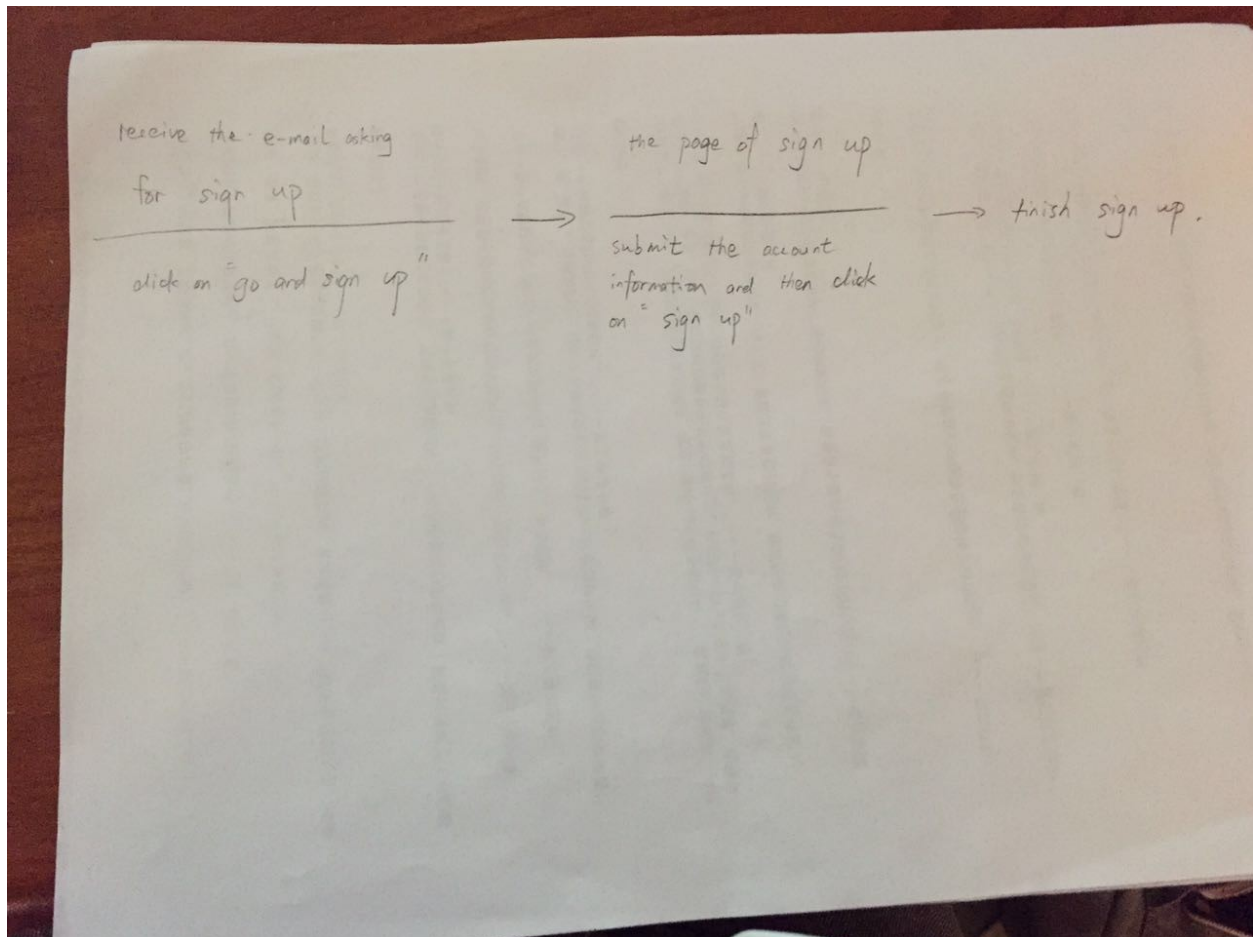 receive the e-mail asking
for sign up
click on "go and sign up"
→
the page of sign up
submit the account
information and then click
on "sign up"
→ finish sign up.